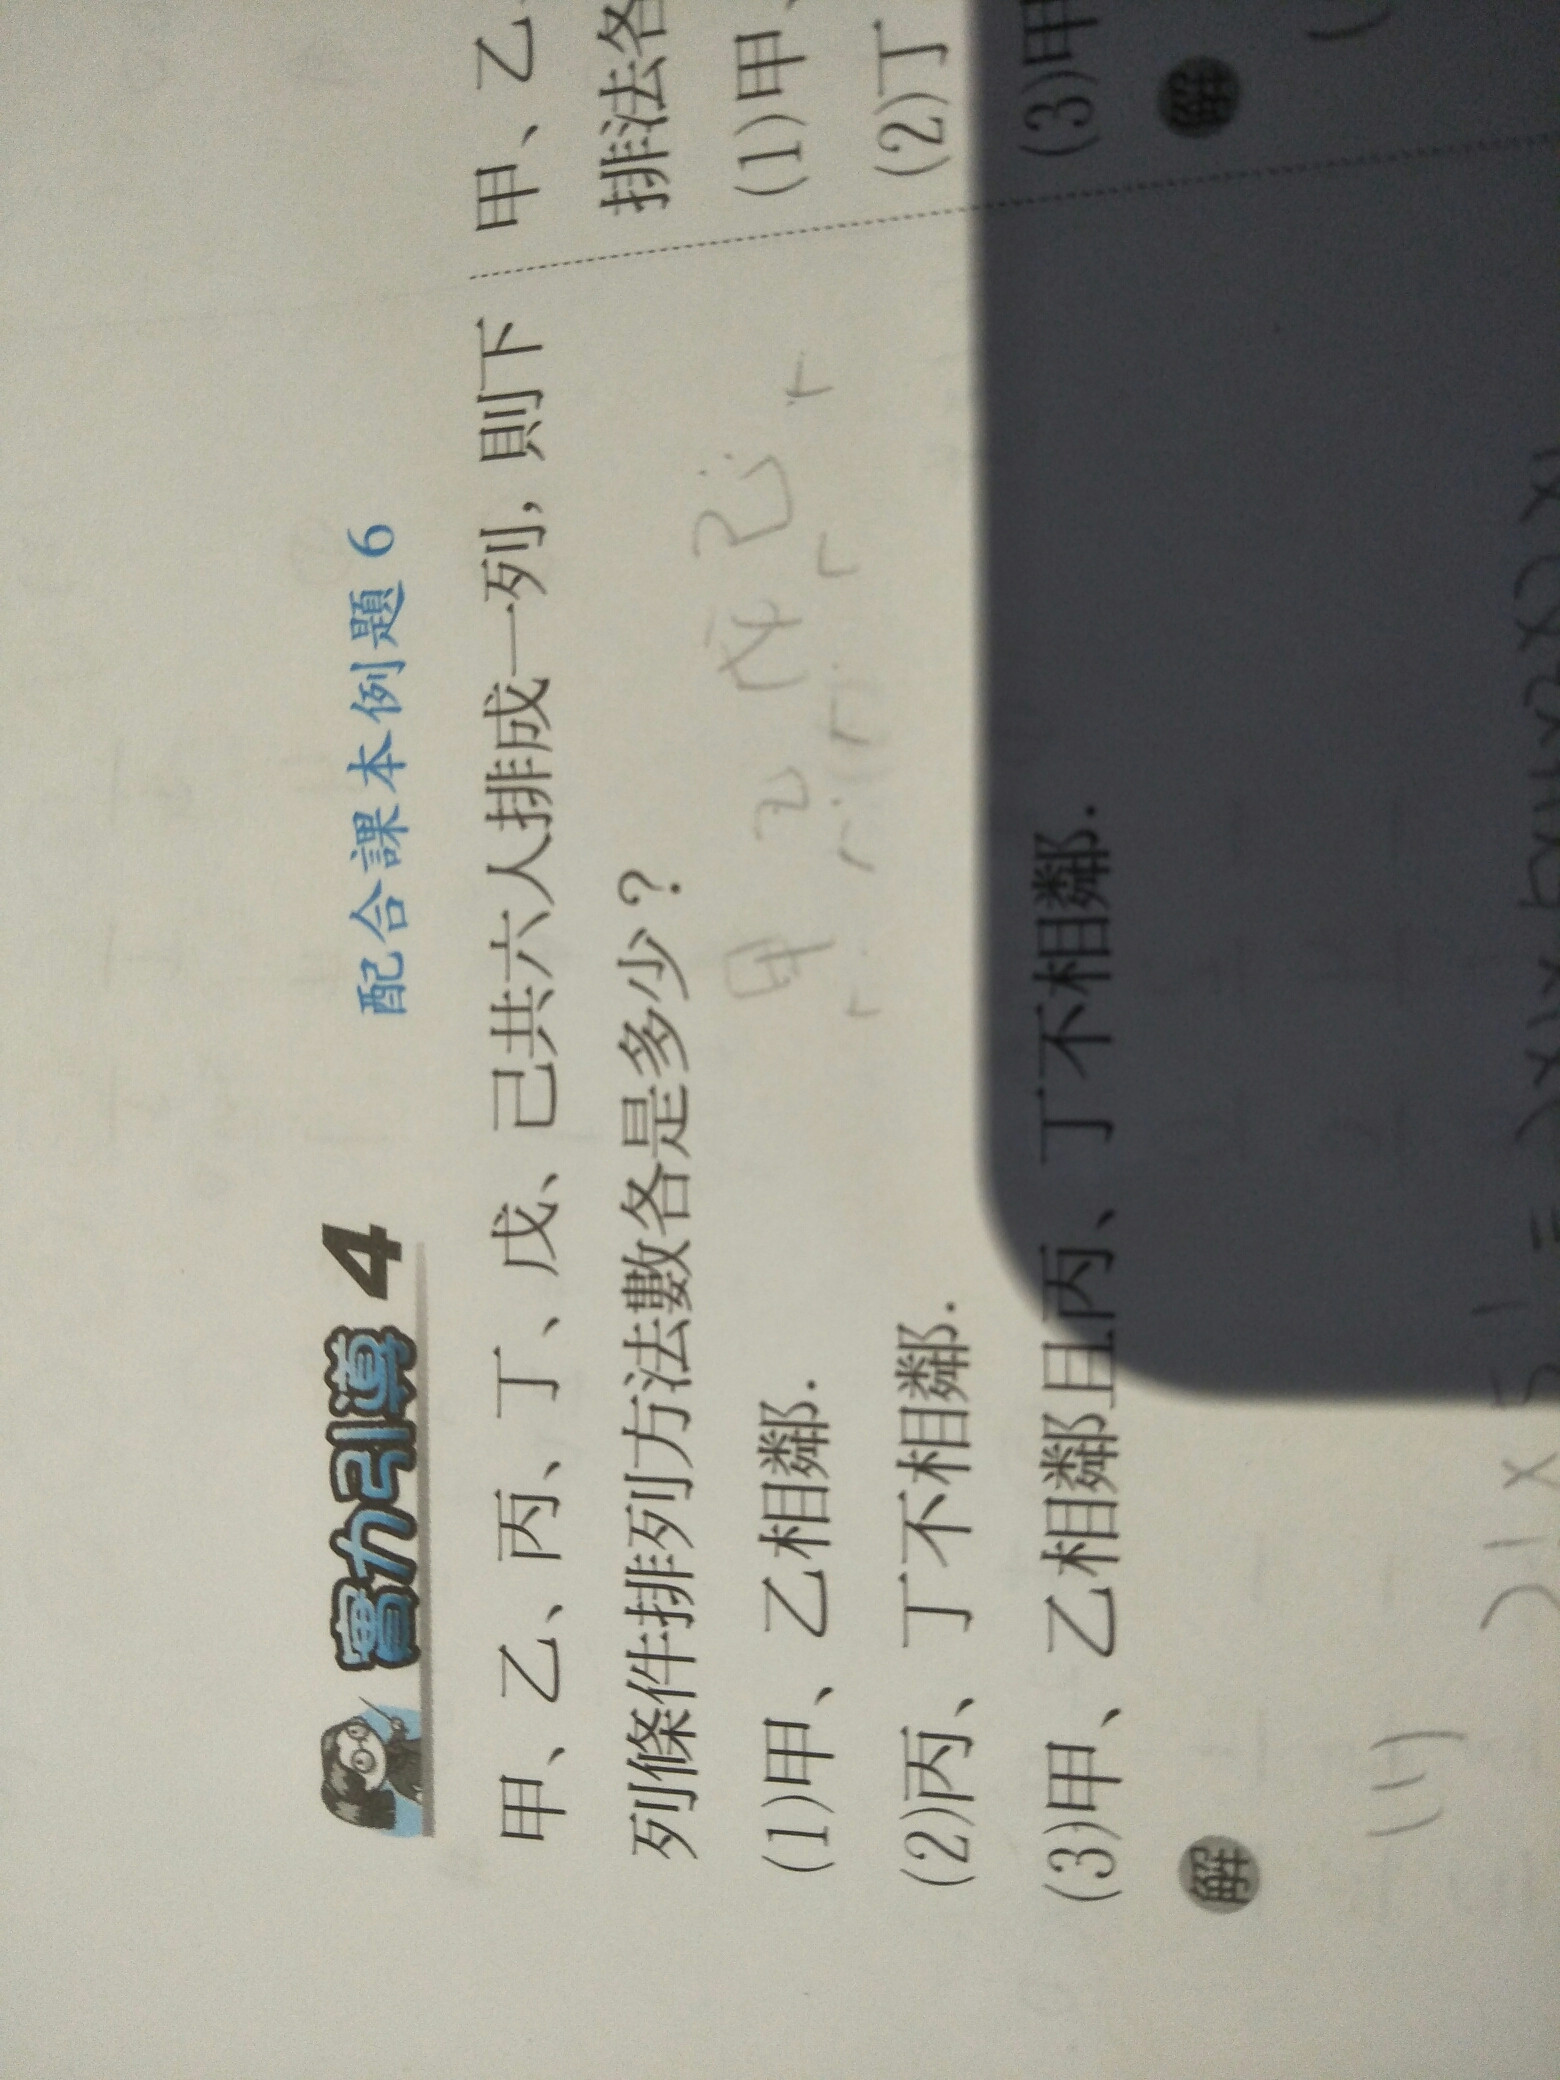 實力引導 4
配合課本例題 6
甲、乙、丙、丁、戊、己共六人排成一列，則下
列條件排列方法數各是多少？
(1)甲、乙相鄰.
(2)丙、丁不相鄰.
(3)甲、乙相鄰且丙、丁不相鄰.
解
甲 乙 戊 己
(1)
甲、乙
排法各
(1)甲、
(2)丁
(3)甲
解